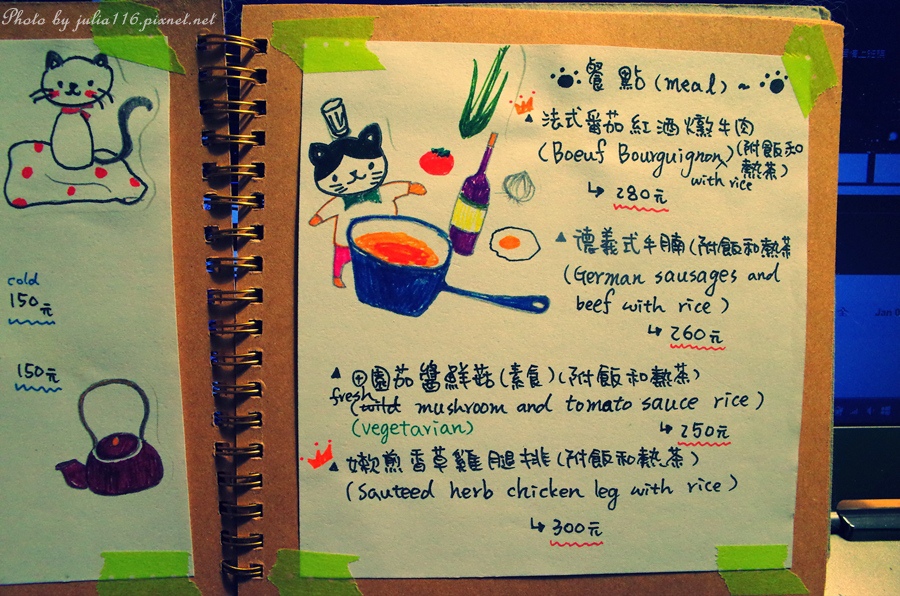 Photo by julia116.pixnet.net
cold
150元
150元
餐點 (meal) ~
法式番茄紅酒燉牛肉
(Boeuf Bourguignon) (附飯和熱茶)
with rice
280元
德義式牛腩 (附飯和熱茶
(German sausages and
beef with rice)
260元
田園茄醬鮮菇 (素食) (附飯和熱茶)
fresh
(wild mushroom and tomato sauce rice)
(vegetarian)
250元
嫩煎香草雞腿排 (附飯和熱茶)
(Sauteed herb chicken leg with rice)
300元